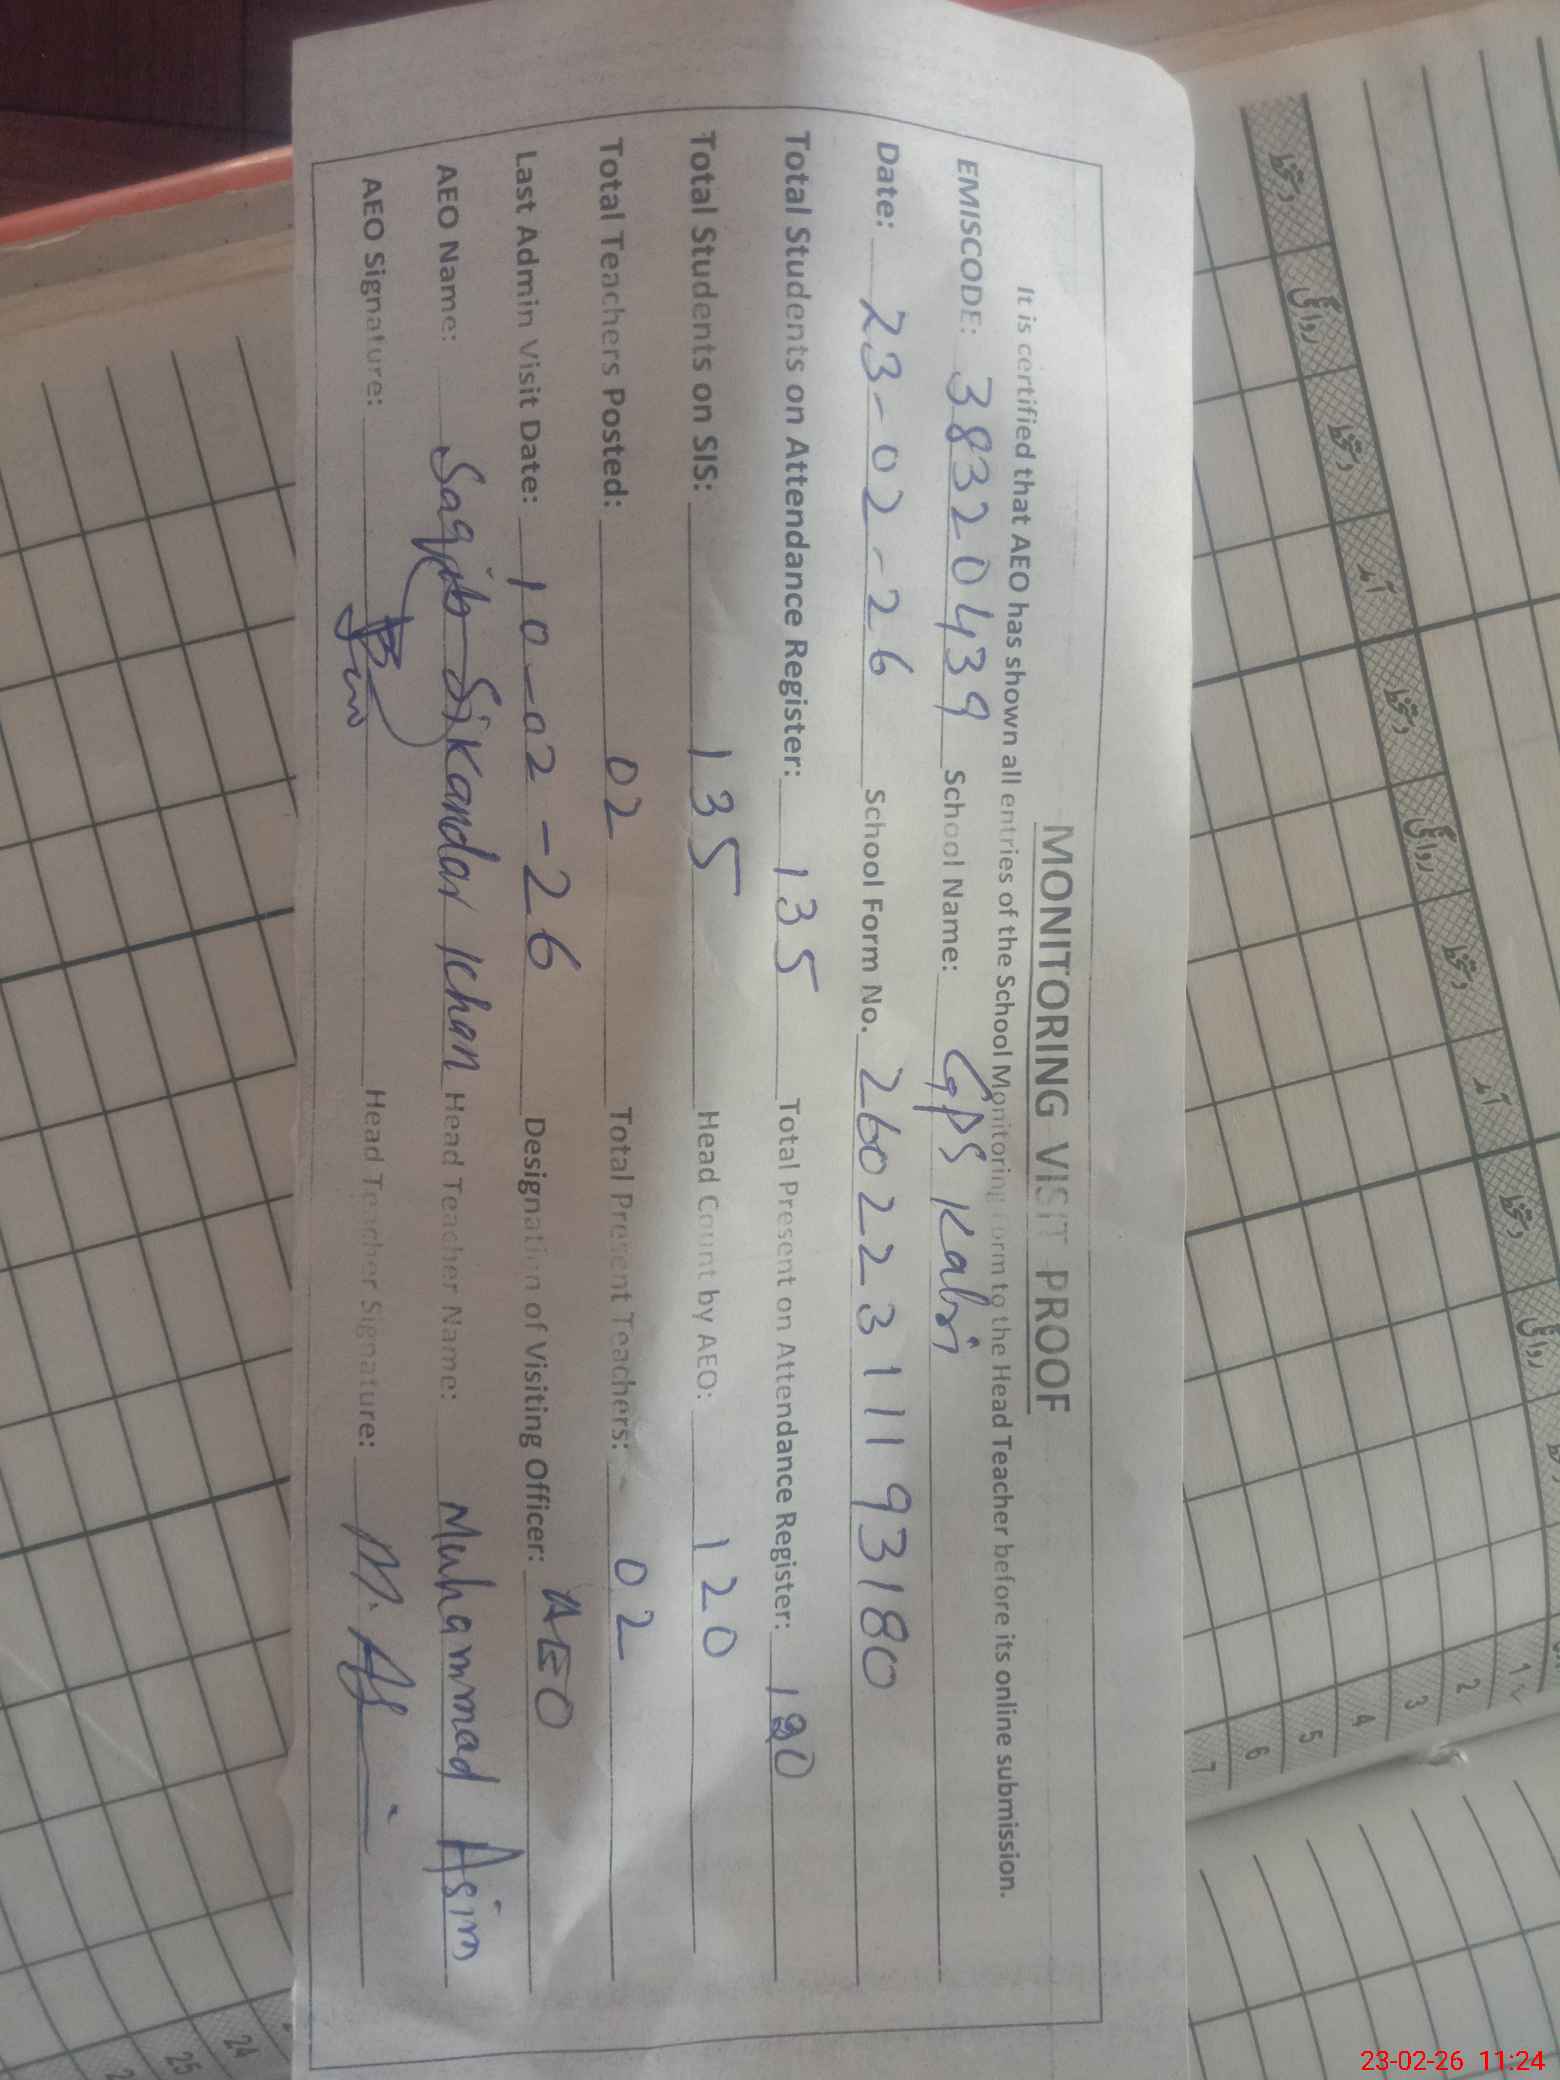 MONITORING VISIT PROOF
It is certified that AEO has shown all entries of the School Monitoring Form to the Head Teacher before its online submission.
EMISCODE: 38320439 School Name: GPS Kabri
Date: 23-02-26 School Form No. 26022311193180
Total Students on Attendance Register: 135 Total Present on Attendance Register: 120
Total Students on SIS: 135 Head Count by AEO: 120
Total Teachers Posted: 02 Total Present Teachers: 02
Last Admin Visit Date: 10-02-26 Designation of Visiting Officer: AEO
AEO Name: Saqib Sikandar Khan Head Teacher Name: Muhammad Asim
AEO Signature: Head Teacher Signature: M. Asim
دستخط
روانگی
دستخط
آمد
دستخط
روانگی
دستخط
آمد
دستخط
روانگی
1
2
3
4
5
6
7
24
25
23-02-26 11:24